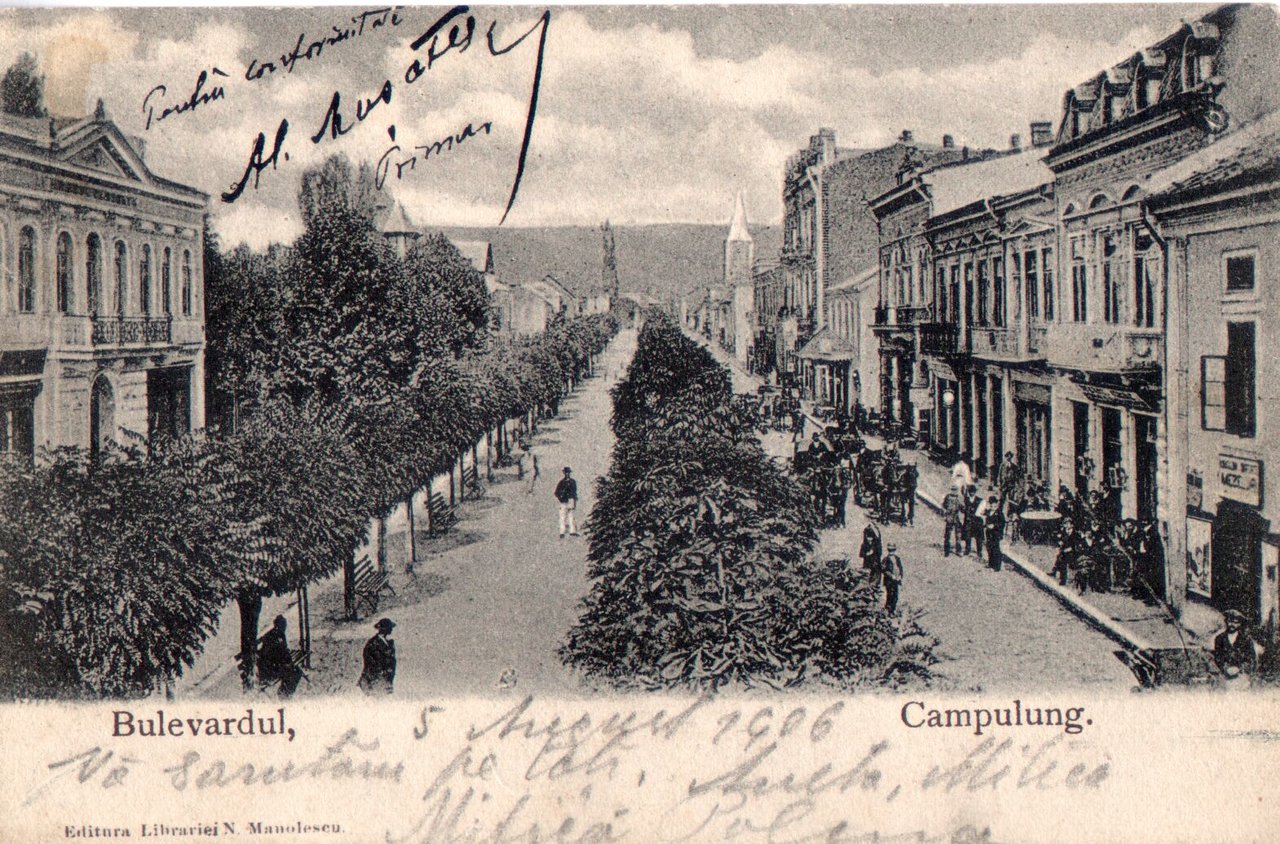 Pentru conformitate
Al. Mușătescu
Primar
MEZELUR
Bulevardul,
Campulung.
5 August 1906
Vă sărutăm pe toți, Aurela, Mitică
Mitică Polina
Editura Librariei N. Manolescu.